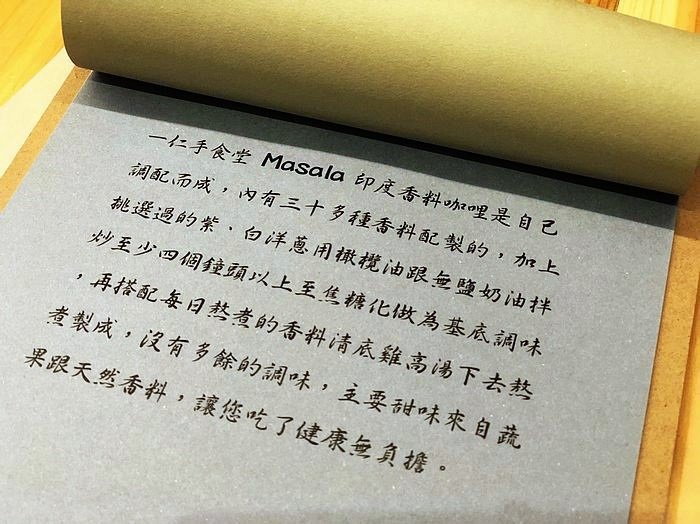 一仁手食堂 Masala 印度香料咖哩是自己
調配而成，內有三十多種香料配製的，加上
挑選過的紫、白洋蔥用橄欖油跟無鹽奶油拌
炒至少四個鐘頭以上至焦糖化做為基底調味
，再搭配每日熬煮的香料清底雞高湯下去熬
煮製成，沒有多餘的調味，主要甜味來自蔬
果跟天然香料，讓您吃了健康無負擔。